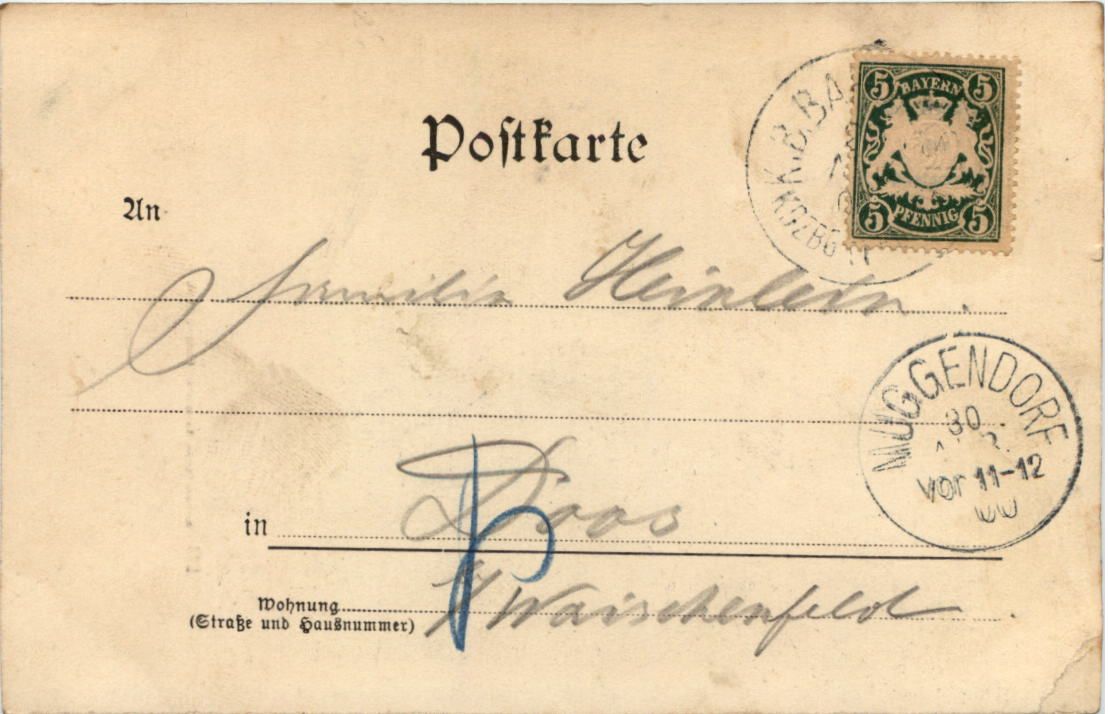 Postkarte
K.B.BA
KOZBG 11
5 BAYERN 5
5 PFENNIG 5
An
Familie Heinlein.
MUGGENDORF
30
Vor 11-12
00
in Doos
Wohnung
(Straße und Hausnummer)
Waischenfeld